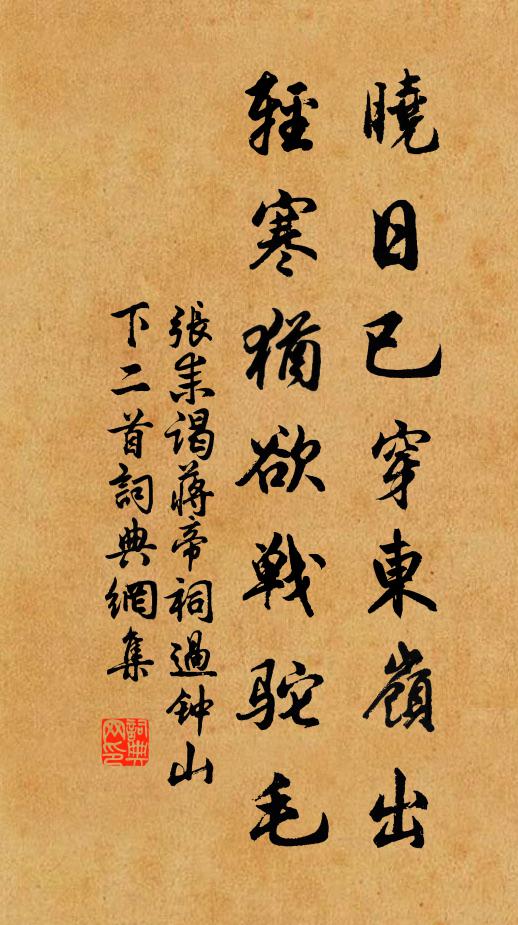 曉日已穿東嶺出
輕寒猶欲戰駝毛
張耒謁蔣帝祠過钟山
下二首詞典網集
詞典
网印